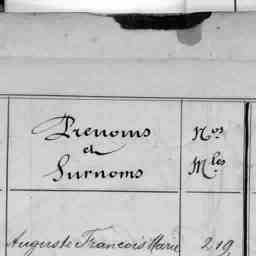 Prenoms
et
Surnoms
Nos
Mles
Auguste Francois Marie
219